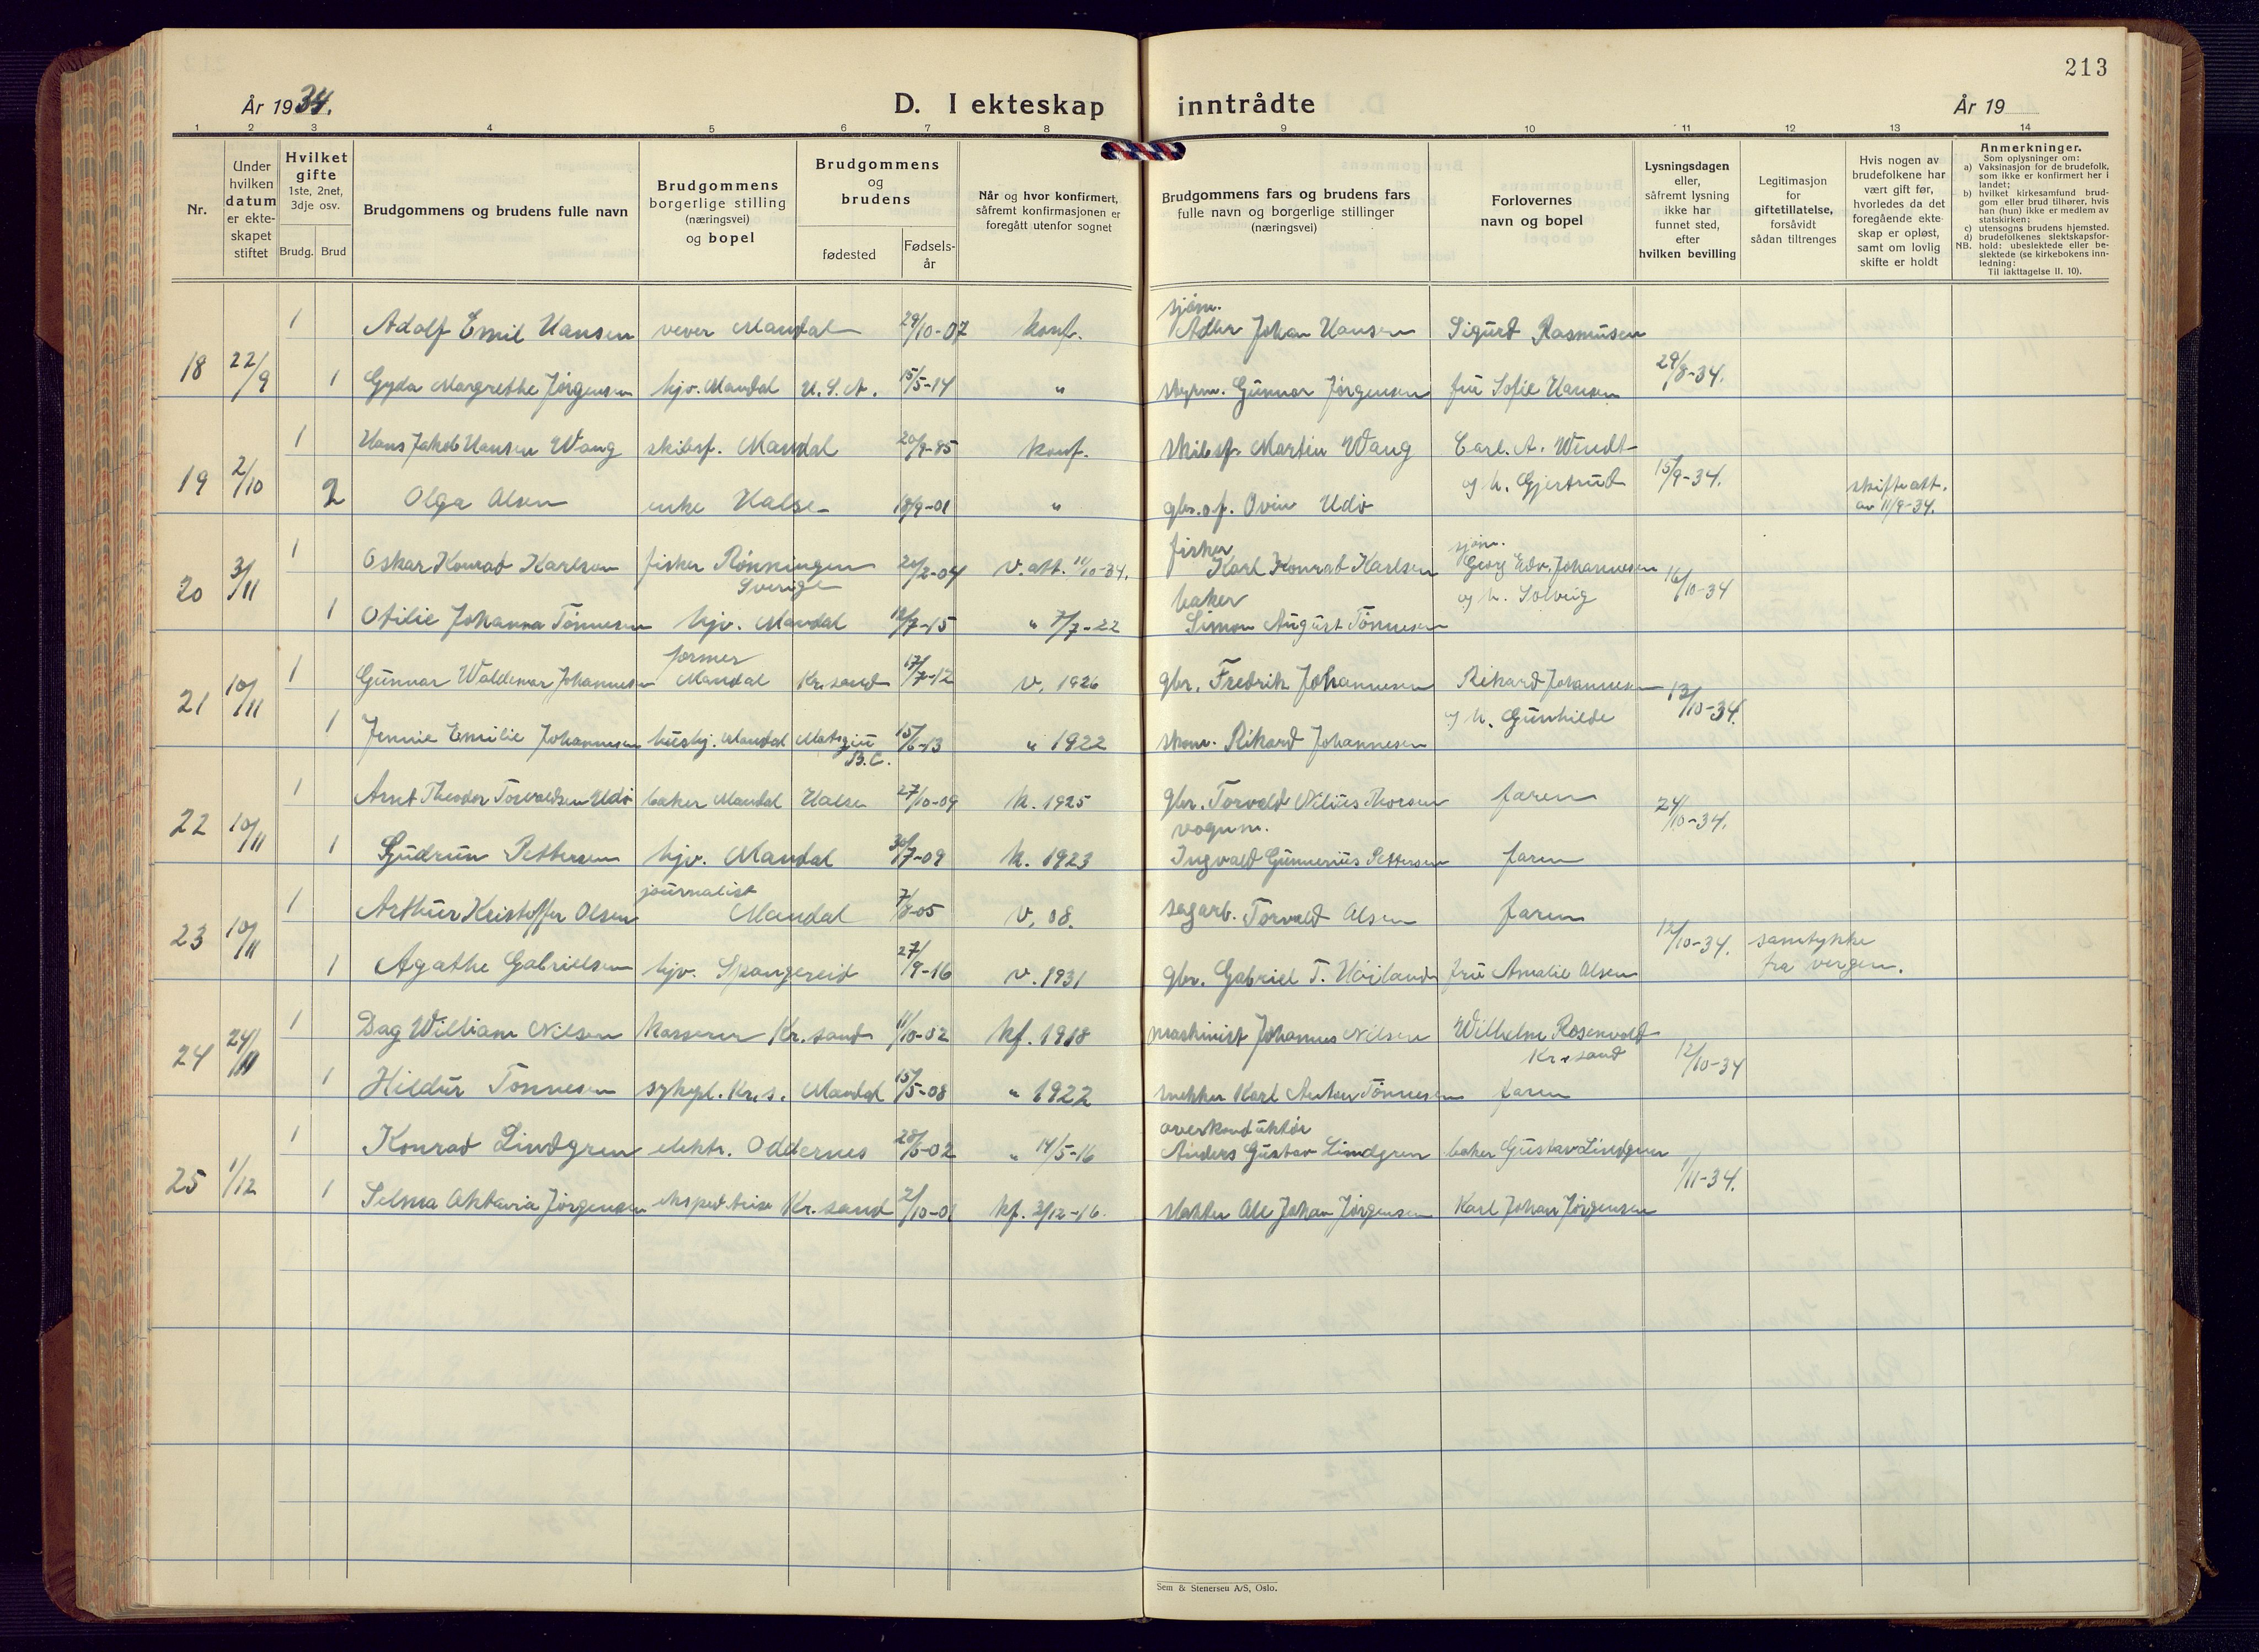 213
År 1934.
D. I ekteskap inntrådte
År 19
1 2 3 4 5 6 7 8 9 10 11 12 13 14
Nr.
Under hvilken datum er ekteskapet stiftet
Hvilket gifte
1ste, 2net, 3dje osv.
Brudg. Brud
Brudgommens og brudens fulle navn
Brudgommens borgerlige stilling (næringsvei) og bopel
Brudgommens og brudens
fødested
Fødsels-år
Når og hvor konfirmert, såfremt konfirmasjonen er foregått utenfor sognet
Brudgommens fars og brudens fars fulle navn og borgerlige stillinger (næringsvei)
Forlovernes navn og bopel
Lysningsdagen eller, såfremt lysning ikke har funnet sted, efter hvilken bevilling
Legitimasjon for giftetillatelse, forsåvidt sådan tiltrenges
Hvis nogen av brudefolkene har vært gift før, hvorledes da det foregående ekteskap er opløst, samt om lovlig skifte er holdt
Anmerkninger.
Som oplysninger om:
a) Vaksinasjon for de brudefolk, som ikke er konfirmert her i landet;
b) hvilket kirkesamfund brudgom eller brud tilhører, hvis han (hun) ikke er medlem av statskirken;
c) utensogns brudens hjemsted.
d) brudefolkenes slektskapsforhold: ubeslektede eller beslektede (se kirkebokens innledning:
NB. Til iakttagelse II. 10).
sjøm.
1 Adolf Emil Hansen vever Mandal 29/10-07 konf. Johan Hansen Sigurd Rasmusen
18 22/9 29/8-34.
1 Gyda Margrethe Jørgensen hjv. Mandal U.S.A. 15/5-14 " styrm. Gunnar Jørgensen fru Sofie Hansen
1 Hans Jakob Hansen Wang skibsf. Mandal 20/9-85 konf. skibsf. Martin Wang Carl. A. Wendt
19 2/10 og h. Gjertrud 15/9-34. skifteatt.
2 Olga Olsen enke Halse 18/9-01 " Udø av 11/9-34.
fisker sjøm.
1 Oskar Konrad Karlson fisker Rønningen 20/2-04 v. att. 11/10-34. Karl Konrad Karlsen Georg Edv. Johannesen
20 3/11 Sverige baker og h. Solveig 16/10-34
1 Otilie Johanna Tønnesen hjv. Mandal 12/7-15 " 7/7-22 Simon August Tønnesen
former
1 Gunnar Waldemar Johannesen Mandal Kr.sand 17/7-12 v. 1926 gbr. Fredrik Johannesen Rikard Johannesen
21 10/11 og h. Gunhilde 13/10-34.
1 Jennie Emilie Johannesen hushj. Mandal 15/6-13 " 1922 Rikard Johannesen
B.C.
1 Arnt Theodor Torvaldsen Udø baker Mandal Halse 27/10-09 k. 1925 gbr. Torvald Nilius Thorsen faren
22 10/11 vognm. 24/10-34.
1 Gudrun Pettersen hjv. Mandal 30/7-09 k. 1923 Ingvald Gunnerius Pettersen faren
journalist
1 Arthur Kristoffer Olsen Mandal 7/8-05 v. 08. sagarb. Torvald Olsen faren
23 10/11 12/10-34. samtykke
1 Agathe Gabrielsen hjv. Spangereid 27/9-16 v. 1931 gbr. Gabriel T. Høiland fru Amalie Olsen fra vergen.
1 Dag William Nilsen kasserer Kr.sand 11/10-02 kf. 1918 maskinist Johannes Nilsen Wilhelm Rosenvold
24 24/11 Kr.sand 12/10-34
1 Hildur Tønnesen sykepl. Kr.s. Mandal 15/5-08 " 1922 snekker Karl Anton Tønnesen faren
overkonduktør
1 Konrad Lindgren elektr. Oddernes 28/5-02 " 14/5-16 Anders Gustav Lindgren baker Gustav Lindgren
25 1/12 1/11-34.
1 Selma Oktavia Jørgensen ekspeditrise Kr.sand 2/10-01 kf. 3/12-16. slakter Ole Johan Jørgensen Karl Johan Jørgensen
Sem & Stenersen A/S, Oslo.